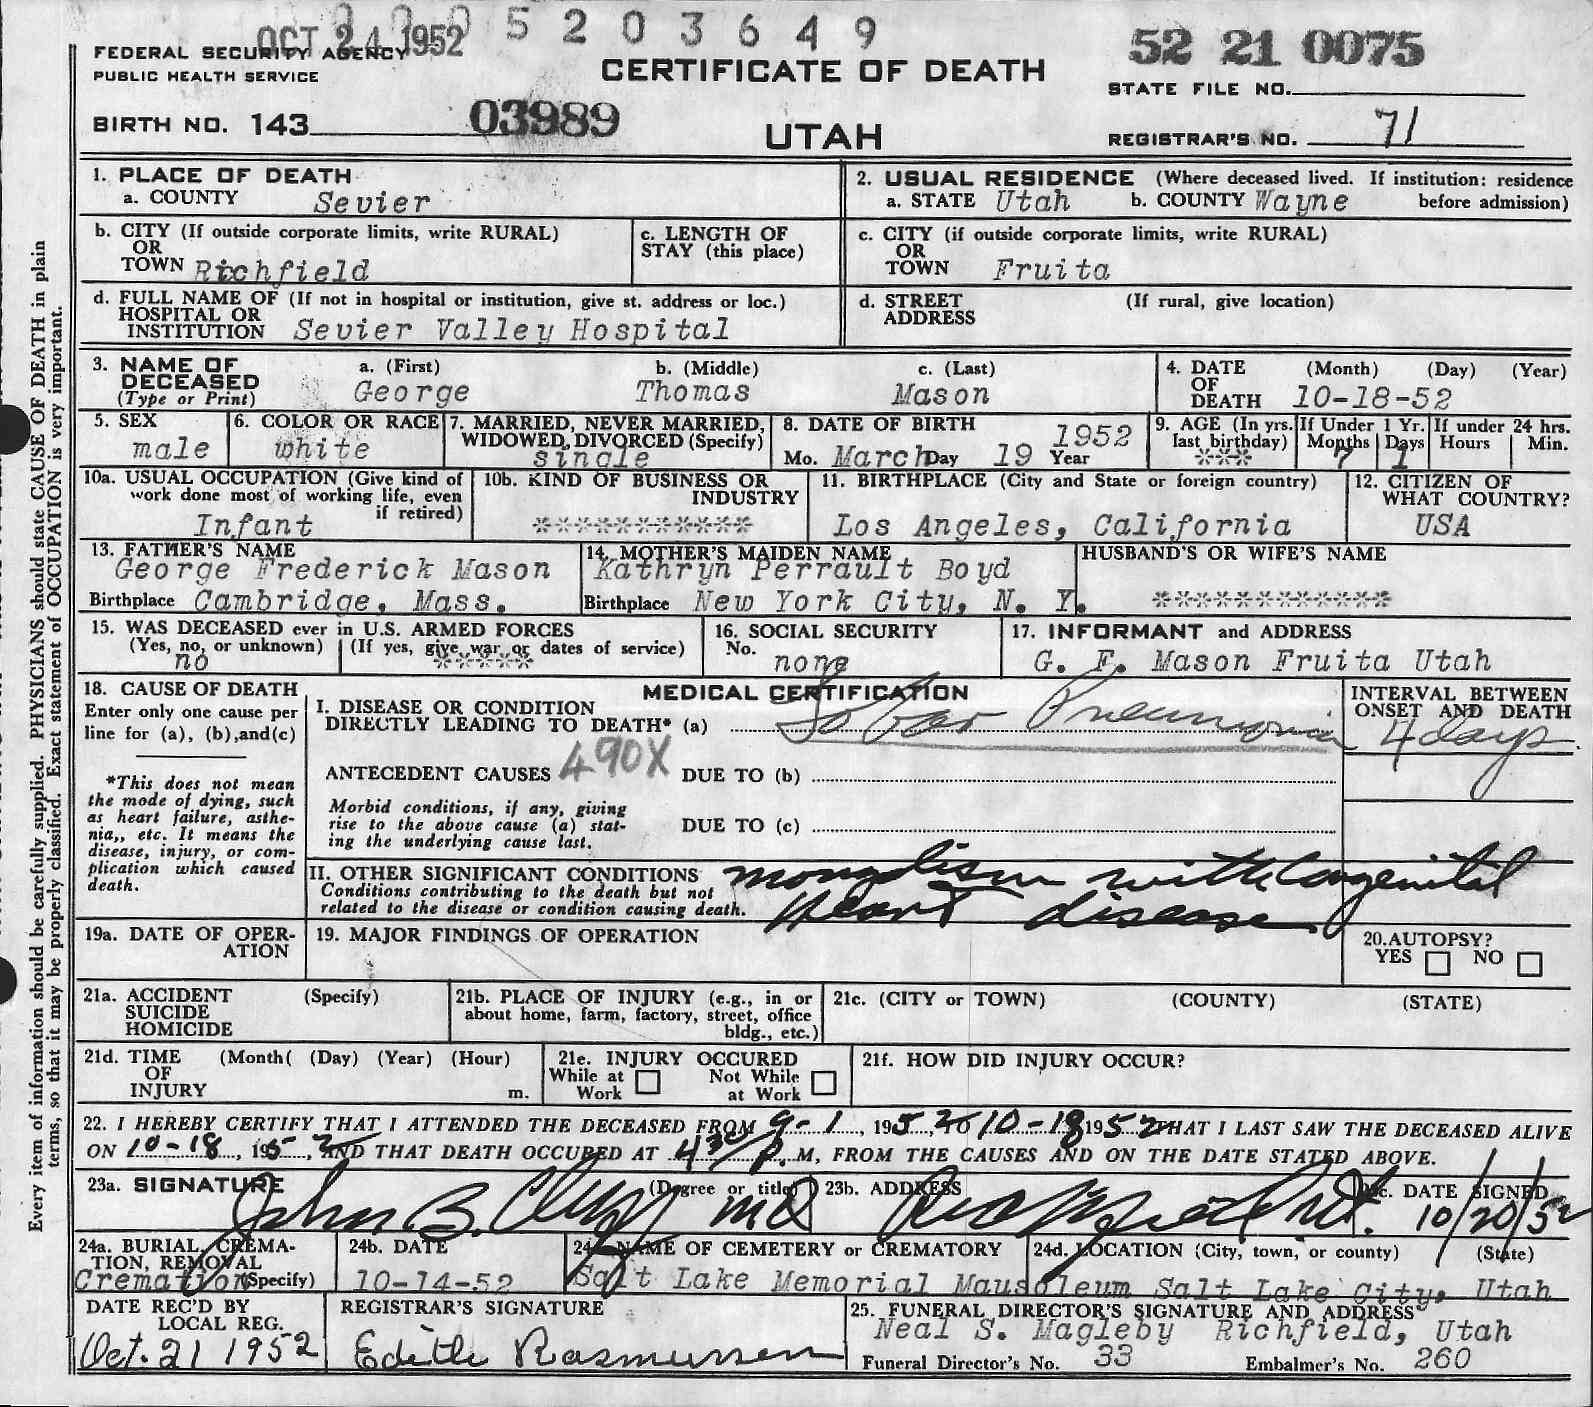 OCT 24 1952 5 2 0 3 6 4 9
52 21 0075
FEDERAL SECURITY AGENCY
PUBLIC HEALTH SERVICE
CERTIFICATE OF DEATH
STATE FILE NO.
BIRTH NO. 143 03989
UTAH
REGISTRAR'S NO. 71
1. PLACE OF DEATH
a. COUNTY Sevier
2. USUAL RESIDENCE (Where deceased lived. If institution: residence
a. STATE Utah b. COUNTY Wayne before admission)
b. CITY (If outside corporate limits, write RURAL)
OR
TOWN Richfield
c. LENGTH OF
STAY (this place)
c. CITY (if outside corporate limits, write RURAL)
OR
TOWN Fruita
d. FULL NAME OF (If not in hospital or institution, give st. address or loc.)
HOSPITAL OR
INSTITUTION Sevier Valley Hospital
d. STREET (If rural, give location)
ADDRESS
3. NAME OF
DECEASED
(Type or Print)
a. (First) b. (Middle) c. (Last)
George Thomas Mason
4. DATE (Month) (Day) (Year)
OF
DEATH 10-18-52
5. SEX
male
6. COLOR OR RACE
white
7. MARRIED, NEVER MARRIED,
WIDOWED, DIVORCED (Specify)
single
8. DATE OF BIRTH
Mo. March Day 19 Year 1952
9. AGE (In yrs.
last birthday)
***
If Under 1 Yr.
Months Days
7 1
If under 24 hrs.
Hours Min.
10a. USUAL OCCUPATION (Give kind of
work done most of working life, even
if retired)
Infant
10b. KIND OF BUSINESS OR
INDUSTRY
***********
11. BIRTHPLACE (City and State or foreign country)
Los Angeles, California
12. CITIZEN OF
WHAT COUNTRY?
USA
13. FATHER'S NAME
George Frederick Mason
Birthplace Cambridge, Mass.
14. MOTHER'S MAIDEN NAME
Kathryn Perrault Boyd
Birthplace New York City, N. Y.
HUSBAND'S OR WIFE'S NAME
************
15. WAS DECEASED ever in U.S. ARMED FORCES
(Yes, no, or unknown) (If yes, give war or dates of service)
no *****
16. SOCIAL SECURITY
No.
none
17. INFORMANT and ADDRESS
G. F. Mason Fruita Utah
18. CAUSE OF DEATH
Enter only one cause per
line for (a), (b), and (c)
*This does not mean
the mode of dying, such
as heart failure, asthe-
nia,, etc. It means the
disease, injury, or com-
plication which caused
death.
MEDICAL CERTIFICATION
I. DISEASE OR CONDITION
DIRECTLY LEADING TO DEATH* (a) Lobar Pneumonia
INTERVAL BETWEEN
ONSET AND DEATH
4 days
ANTECEDENT CAUSES 490X DUE TO (b)
Morbid conditions, if any, giving
rise to the above cause (a) stat-
ing the underlying cause last.
DUE TO (c)
II. OTHER SIGNIFICANT CONDITIONS
Conditions contributing to the death but not
related to the disease or condition causing death.
mongolism with Congenital
Heart disease
19a. DATE OF OPER-
ATION
19. MAJOR FINDINGS OF OPERATION
20. AUTOPSY?
YES NO
21a. ACCIDENT (Specify)
SUICIDE
HOMICIDE
21b. PLACE OF INJURY (e.g., in or
about home, farm, factory, street, office
bldg., etc.)
21c. (CITY or TOWN) (COUNTY) (STATE)
21d. TIME (Month( (Day) (Year) (Hour)
OF
INJURY m.
21e. INJURY OCCURED
While at Work Not While at Work
21f. HOW DID INJURY OCCUR?
22. I HEREBY CERTIFY THAT I ATTENDED THE DECEASED FROM 9-1, 1952, TO 10-18 1952 THAT I LAST SAW THE DECEASED ALIVE
ON 10-18, 1952, AND THAT DEATH OCCURED AT 430 P. M, FROM THE CAUSES AND ON THE DATE STATED ABOVE.
23a. SIGNATURE (Degree or title)
John B. MD
23b. ADDRESS
Richfield Ut.
23c. DATE SIGNED
10/20/52
24a. BURIAL, CREMA-
TION, REMOVAL
Cremation (Specify)
24b. DATE
10-14-52
24c. NAME OF CEMETERY or CREMATORY
Salt Lake Memorial Mausoleum
24d. LOCATION (City, town, or county) (State)
Salt Lake City, Utah
DATE REC'D BY
LOCAL REG.
Oct. 21 1952
REGISTRAR'S SIGNATURE
Edith Rasmussen
25. FUNERAL DIRECTOR'S SIGNATURE AND ADDRESS
Neal S. Magleby Richfield, Utah
Funeral Director's No. 33 Embalmer's No. 260
Every item of information should be carefully supplied. PHYSICIANS should state CAUSE OF DEATH in plain
terms, so that it may be properly classified. Exact statement of OCCUPATION is very important.